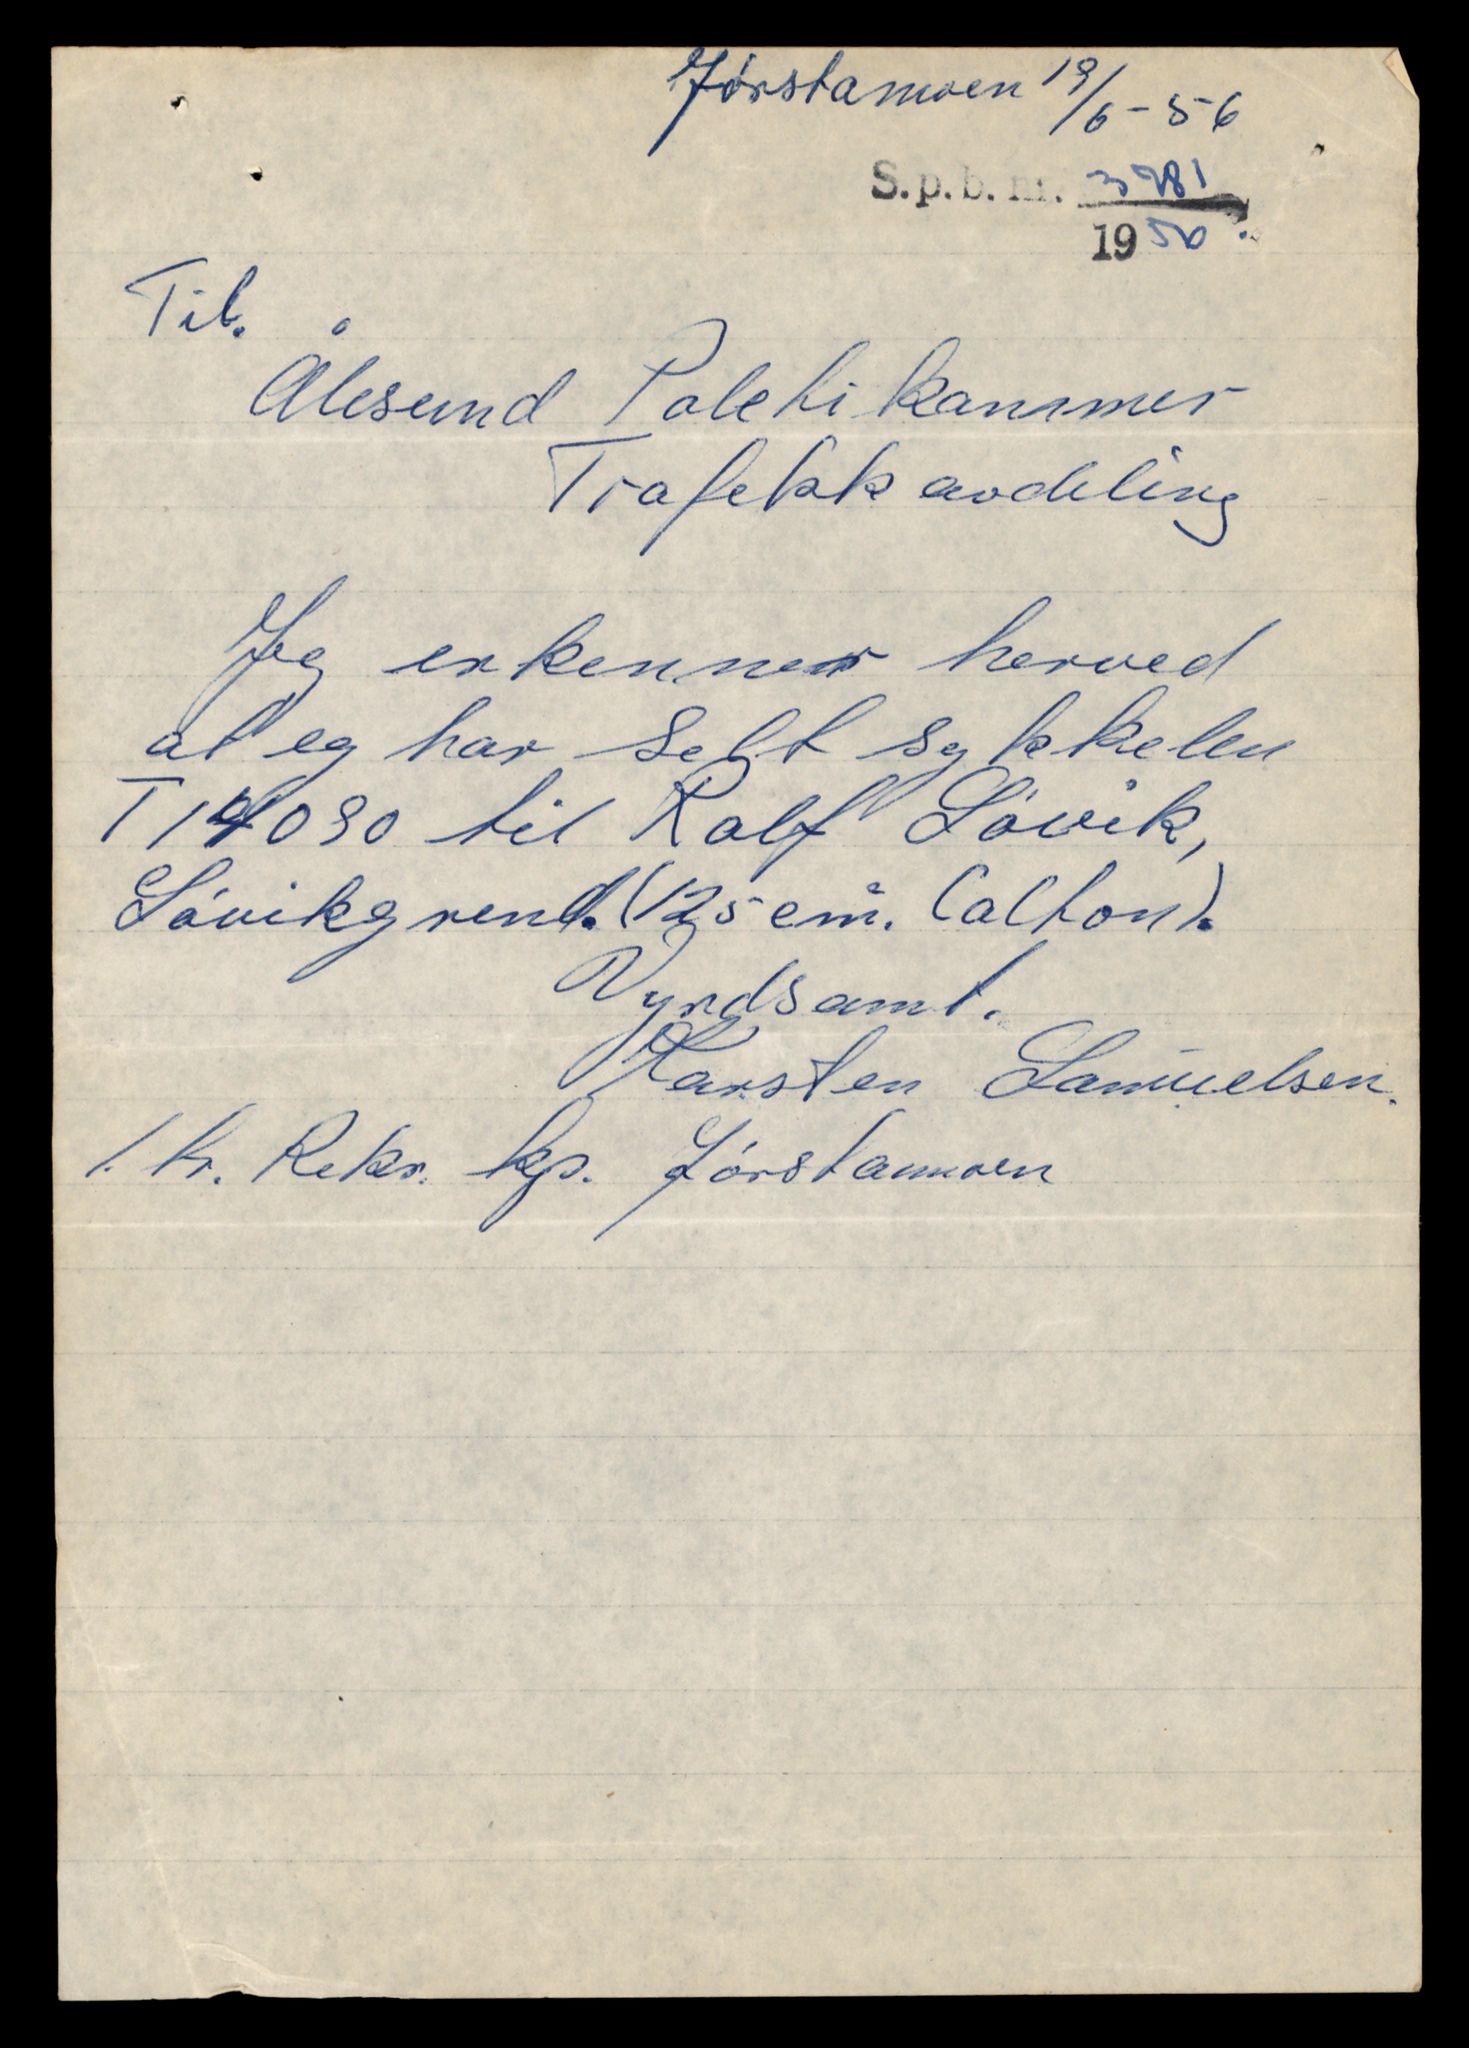 Jørstamoen 19/6-56
S.p.b. nr. 3781
1956.
Til.
Ålesund Politikammer
Trafikkavdeling
Jeg erkenner herved
at eg har selt sykkelen
T14090 til Ralf Løvik,
Løvikgrend. (125 cm. Calton).
Vyrdsamt.
Karsten Samuelsen.
1. tr. Rekr. kp. Jørstamoen